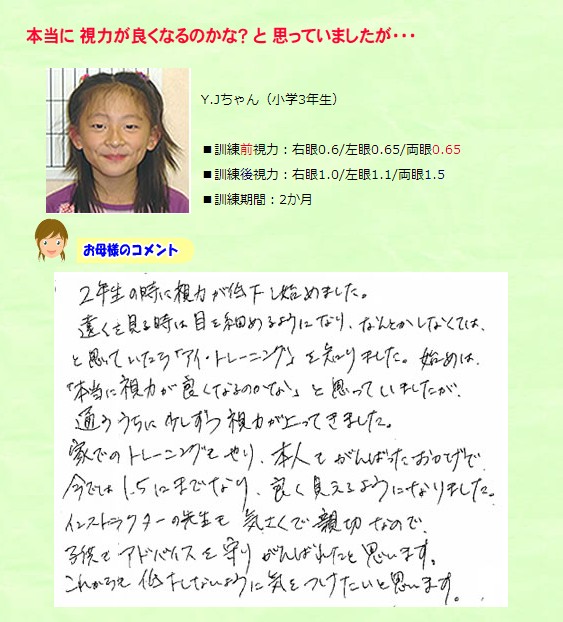 本当に 視力が良くなるのかな? と 思っていましたが・・・
Y.Jちゃん（小学3年生）
■訓練前視力：右眼0.6/左眼0.65/両眼0.65
■訓練後視力：右眼1.0/左眼1.1/両眼1.5
■訓練期間：2か月
お母様のコメント
2年生の時に視力が低下し始めました。
遠くを見る時は目を細めるようになり、なんとかしなくては、
と思っていたら「アイ・トレーニング」を知りました。始めは、
「本当に視力が良くなるのかな」と思っていましたが、
通ううちに少しずつ視力が上ってきました。
家でのトレーニングもやり、本人もがんばったおかげで
今では1.5にまでなり、良く見えるようになりました。
インストラクターの先生も気さくで親切なので、
子供もアドバイスを守りがんばれたと思います。
これからも低下しないように気をつけたいと思います。